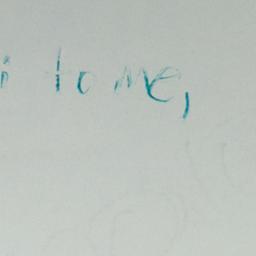 to me,